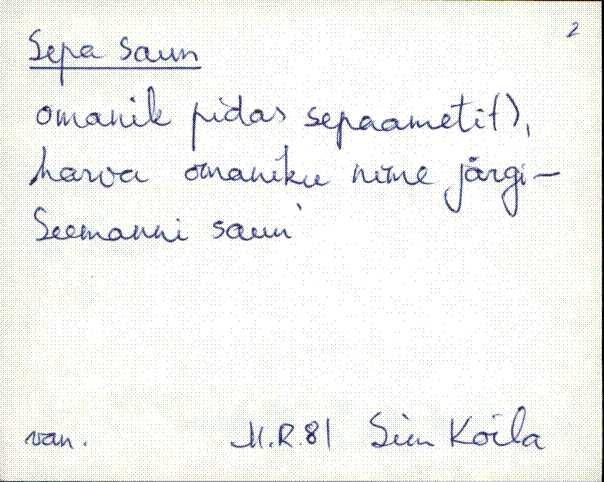 2
Sepa saun
omanik pidas sepaametit),
harva omaniku nime järgi –
Seemanni saun'
van. M.R.81 Siim Koila